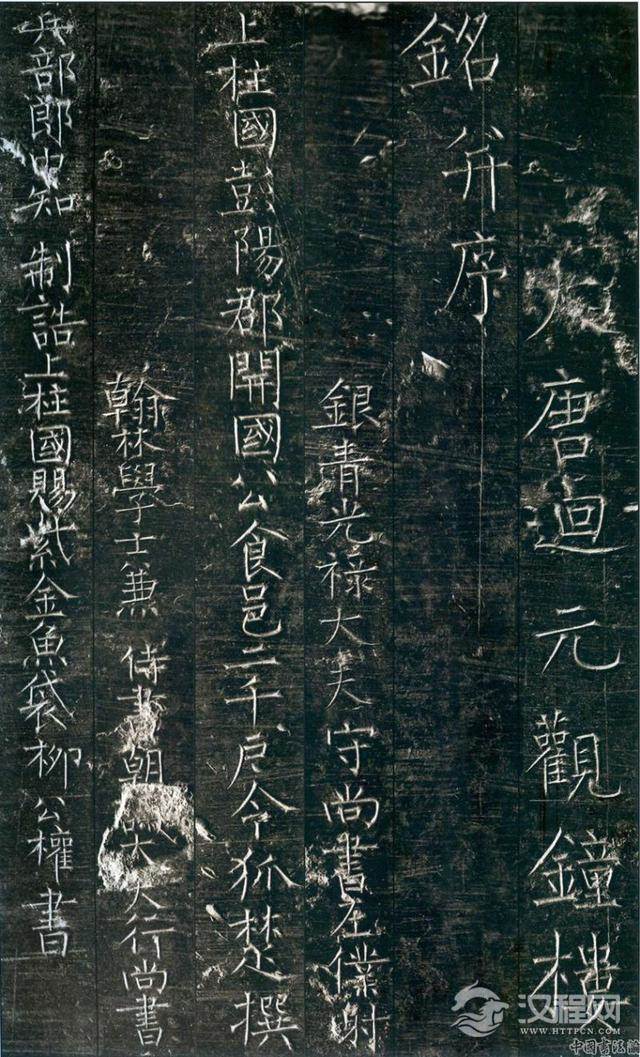 大唐迴元觀鐘樓
銘并序
銀青光祿大夫守尚書左僕射
上柱國彭陽郡開國公食邑二千戶令狐楚撰
翰林學士兼 侍書朝議大夫行尚書
兵部郎中知 制誥上柱國賜紫金魚袋柳公權書
汉程网
WWW.HTTPCN.COM
中國書法